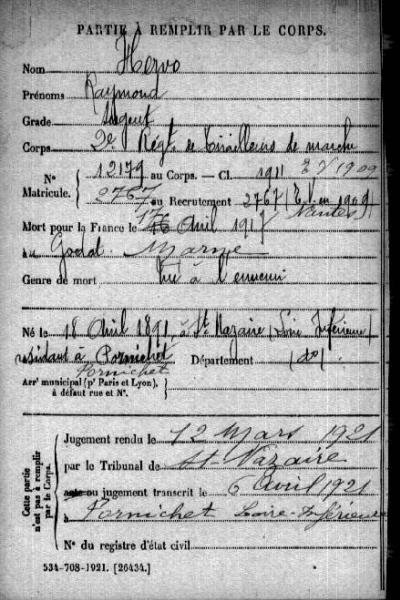 PARTIE À REMPLIR PAR LE CORPS.
Nom Hervo
Prénoms Raymond
Grade Sergent
Corps 2e Régt de Tirailleurs de marche
N° 12179 au Corps. — Cl. 1911 EV 1909
Matricule. 2767 au Recrutement 2767 (E.V. en 1909
Nantes)
Mort pour la France le 16 17 Avril 1917
au Godat Marne
Genre de mort Tué à l'ennemi
Né le 18 Avril 1891 à St Nazaire (Loire Inférieure)
résidant à Pornichet Département (do)
Pornichet
Arrt municipal (pr Paris et Lyon),
à défaut rue et N°.
Cette partie n'est pas à remplir par le Corps.
Jugement rendu le 12 Mars 1921
par le Tribunal de St-Nazaire
acte ou jugement transcrit le 6 Avril 1921
à Pornichet Loire-Inférieure
N° du registre d'état civil
534-708-1921. [26434.]